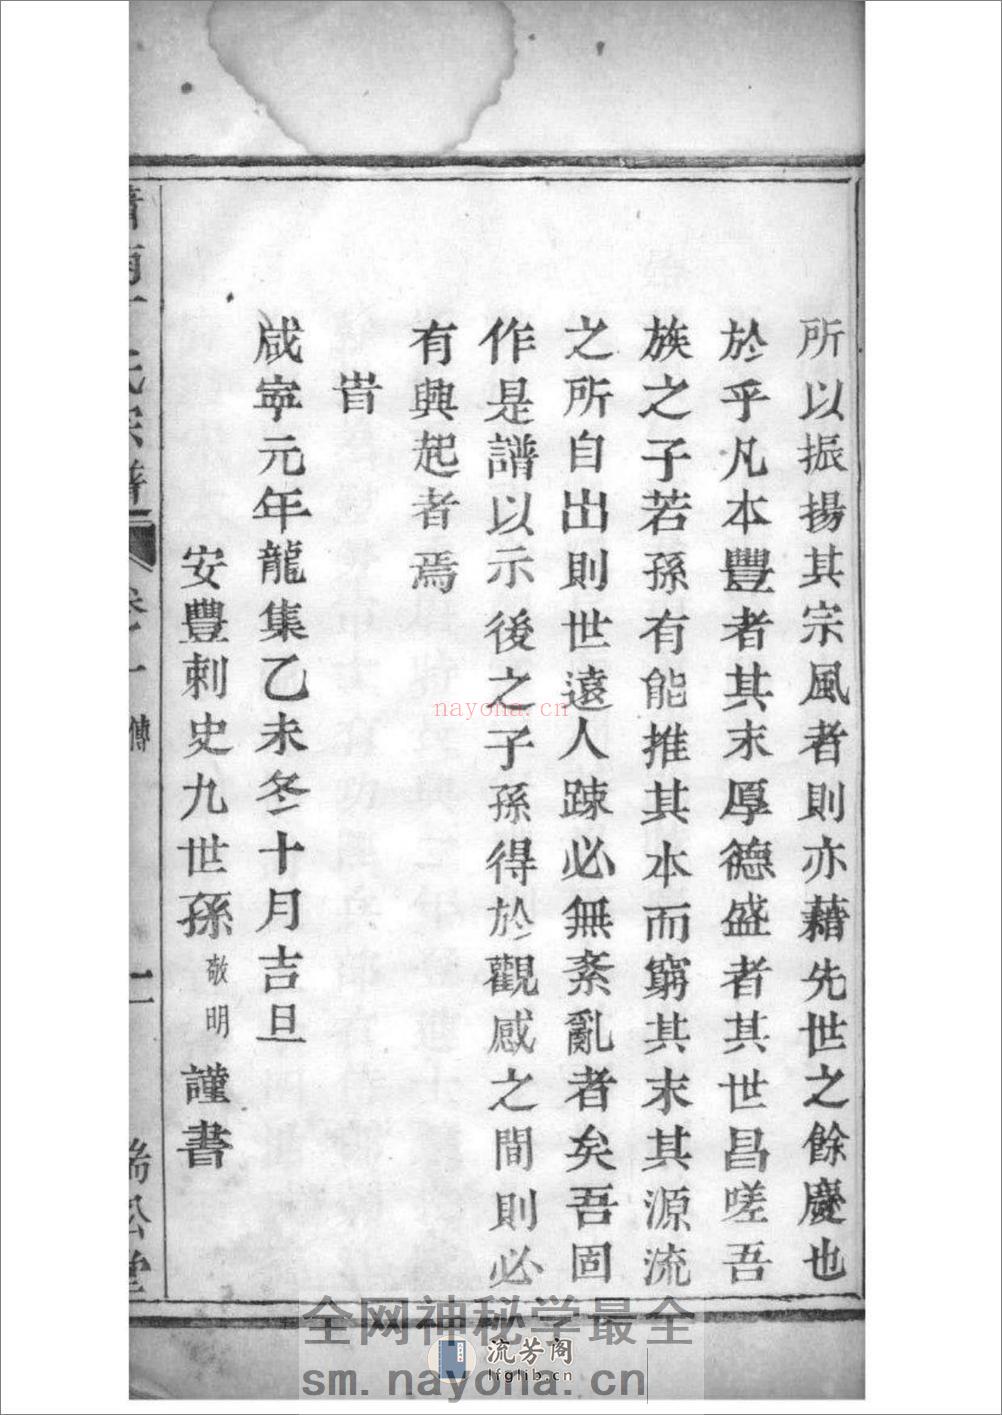 所以振揚其宗風者則亦藉先世之餘慶也
於乎凡本豐者其末厚德盛者其世昌嗟吾
族之子若孫有能推其本而窮其末其源流
之所自出則世遠人疎必無紊亂者矣吾固
作是譜以示後之子孫得於觀感之間則必
有興起者焉
旹
咸寧元年龍集乙未冬十月吉旦
安豐刺史九世孫敬明謹書
氏宗譜
傳
nayona.cn
全网神秘学最全
流芳阁
lfglib.cn
sm.nayona.cn